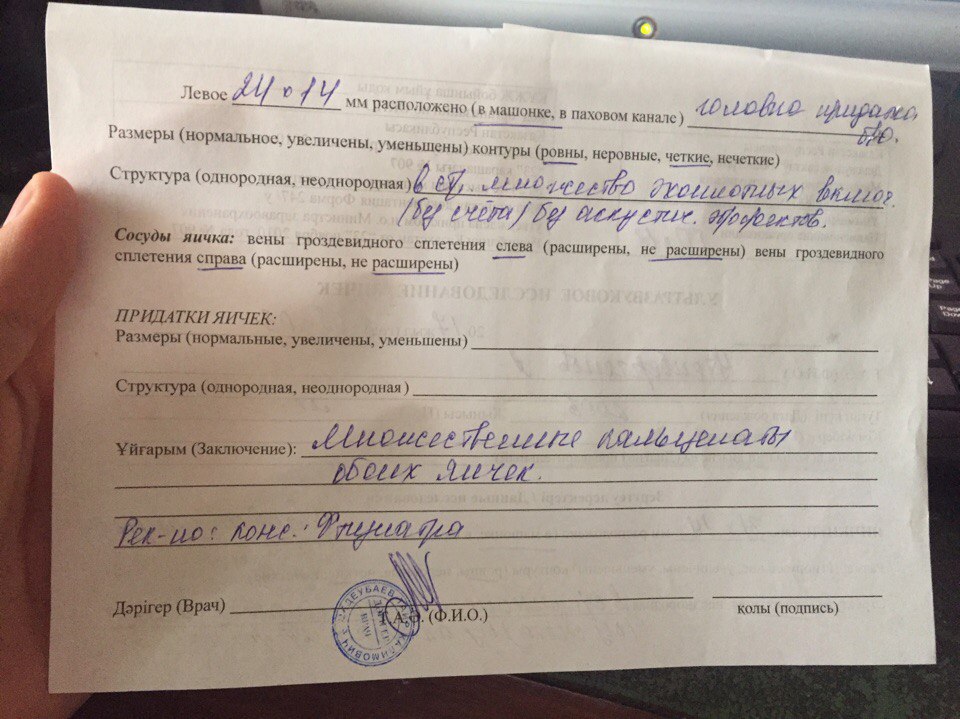 Левое 24 х 14 мм расположено (в машонке, в паховом канале) головка придатка
б/о.
Размеры (нормальное, увеличены, уменьшены) контуры (ровны, неровные, четкие, нечеткие)
Структура (однородная, неоднородная) в ст, множество эхоплотных включ.
(без счёта) без акустич. эффектов.
Сосуды яичка: вены гроздевидного сплетения слева (расширены, не расширены) вены гроздевидного
сплетения справа (расширены, не расширены)
ПРИДАТКИ ЯИЧЕК:
Размеры (нормальные, увеличены, уменьшены)
Структура (однородная, неоднородная)
Ұйғарым (Заключение): Множественные кальцинаты
обоих яичек.
Рек-но: конс. Фтизиатра
Дәрігер (Врач) Т.А.Ә. (Ф.И.О.) қолы (подпись)